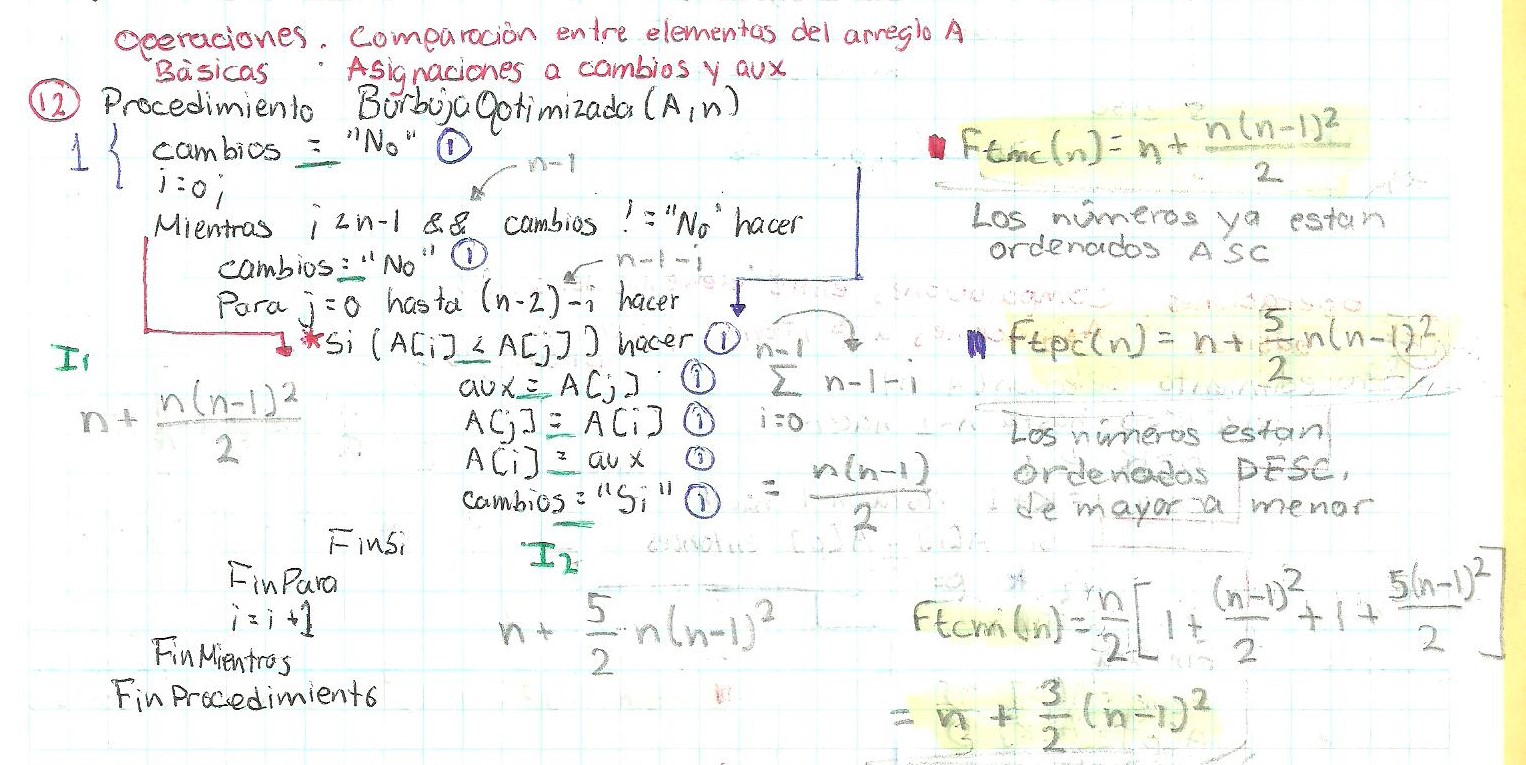 Operaciones . Comparación entre elementos del arreglo A
Básicas . Asignaciones a cambios y aux
12 Procedimiento BurbujaOptimizada (A,n)
1 { cambios = "No" 1
i=0;
n-1
Mientras i < n-1 && cambios != "No" hacer
cambios = "No" 1
n-1-i
Para j=0 hasta (n-2)-i hacer
*Si (A[i] < A[j]) hacer 1
aux = A[j] 1
A[j] = A[i] 1
A[i] = aux 1
cambios = "Si" 1
FinSi
FinPara
i=i+1
FinMientras
FinProcedimiento
I1
n + n(n-1)²/2
n-1
Σ n-1-i
i=0
= n(n-1)/2
I2
n + 5/2 n(n-1)²
Ftmc(n) = n + n(n-1)²/2
Los números ya estan
ordenados ASC
Ftpc(n) = n + 5/2 n(n-1)²
Los números estan
ordenados DESC,
de mayor a menor
Ftcm(n) = n/2 [1 + (n-1)²/2 + 1 + 5(n-1)²/2]
= n + 3/2 (n-1)²